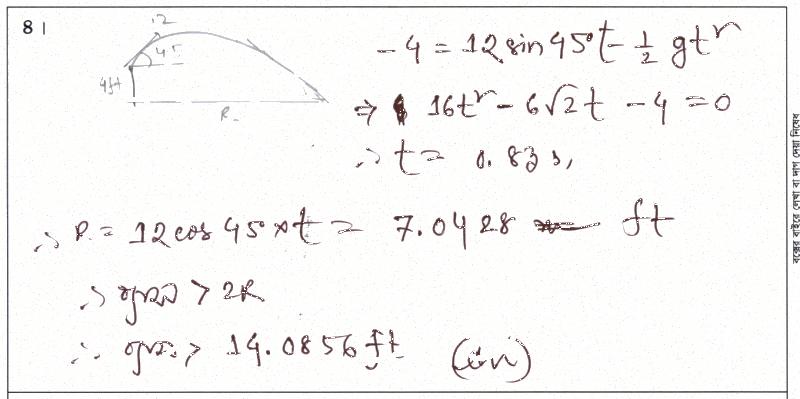 8|
12
45
4ft
R
-4 = 12 sin 45° t - 1/2 gt²
⇒ 16t² - 6√2 t - 4 = 0
∴ t = 0.83 s,
∴ R = 12 cos 45° × t = 7.0428 ft
∴ > 2R
∴ > 14.0856 ft (Ans)
বক্সের বাইরে লেখা বা দাগ দেয়া নিষেধ